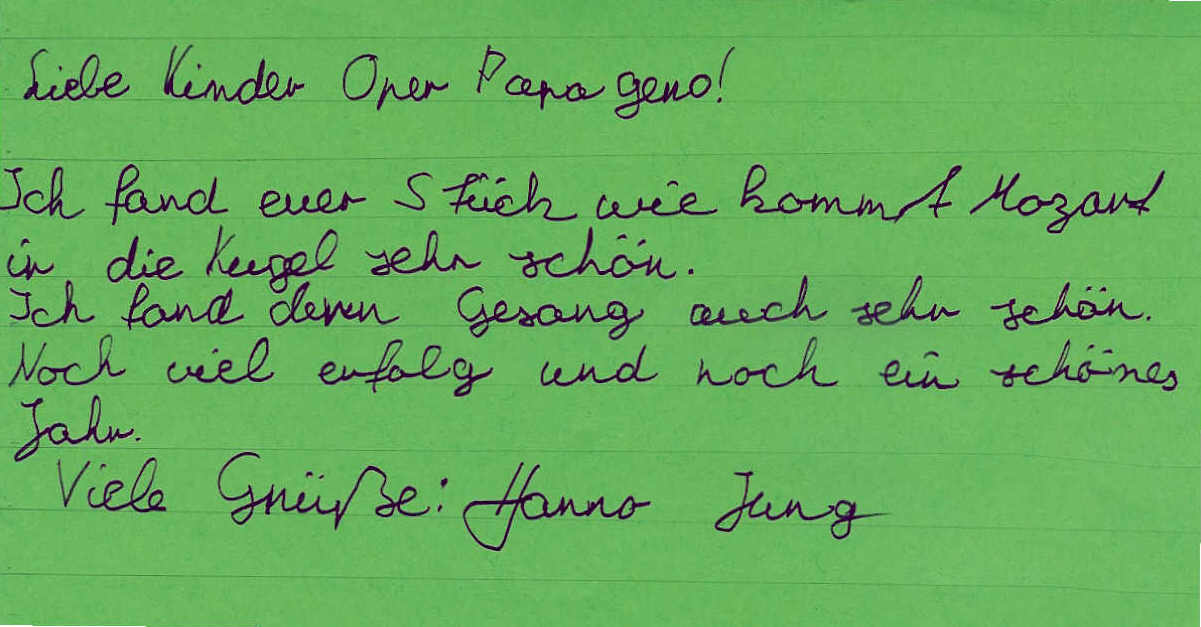 Liebe Kinder Oper Papageno!
Ich fand euer Stück wie kommt Mozart
in die Kugel sehr schön.
Ich fand deren Gesang auch sehr schön.
Noch viel erfolg und noch ein schönes
Jahr.
Viele Grüße: Hanno Jung